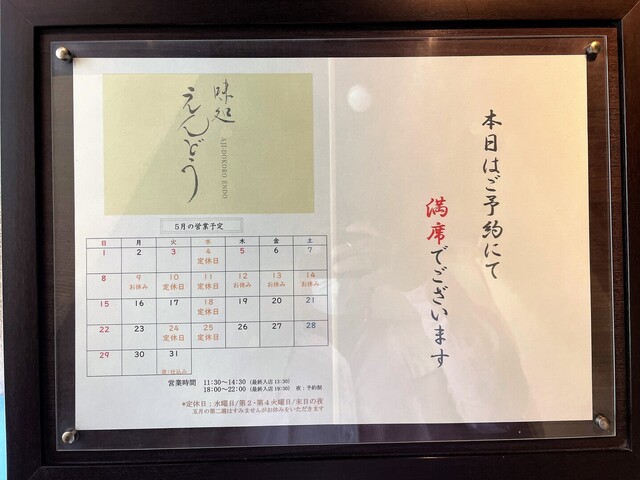 味処
えんどう
AJI-DOKORO ENDO
5月の営業予定
日 月 火 水 木 金 土
1 2 3 4 5 6 7
定休日
8 9 10 11 12 13 14
お休み 定休日 定休日 お休み お休み お休み
15 16 17 18 19 20 21
定休日
22 23 24 25 26 27 28
定休日 定休日
29 30 31
営業時間 11:30〜14:30 (最終入店 13:30)
18:00〜22:00 (最終入店 19:30) 夜:予約制
*定休日:水曜日/第2・第4火曜日/末日の夜
五月の第二週はすみませんがお休みをいただきます
本日はご予約にて
満席でございます